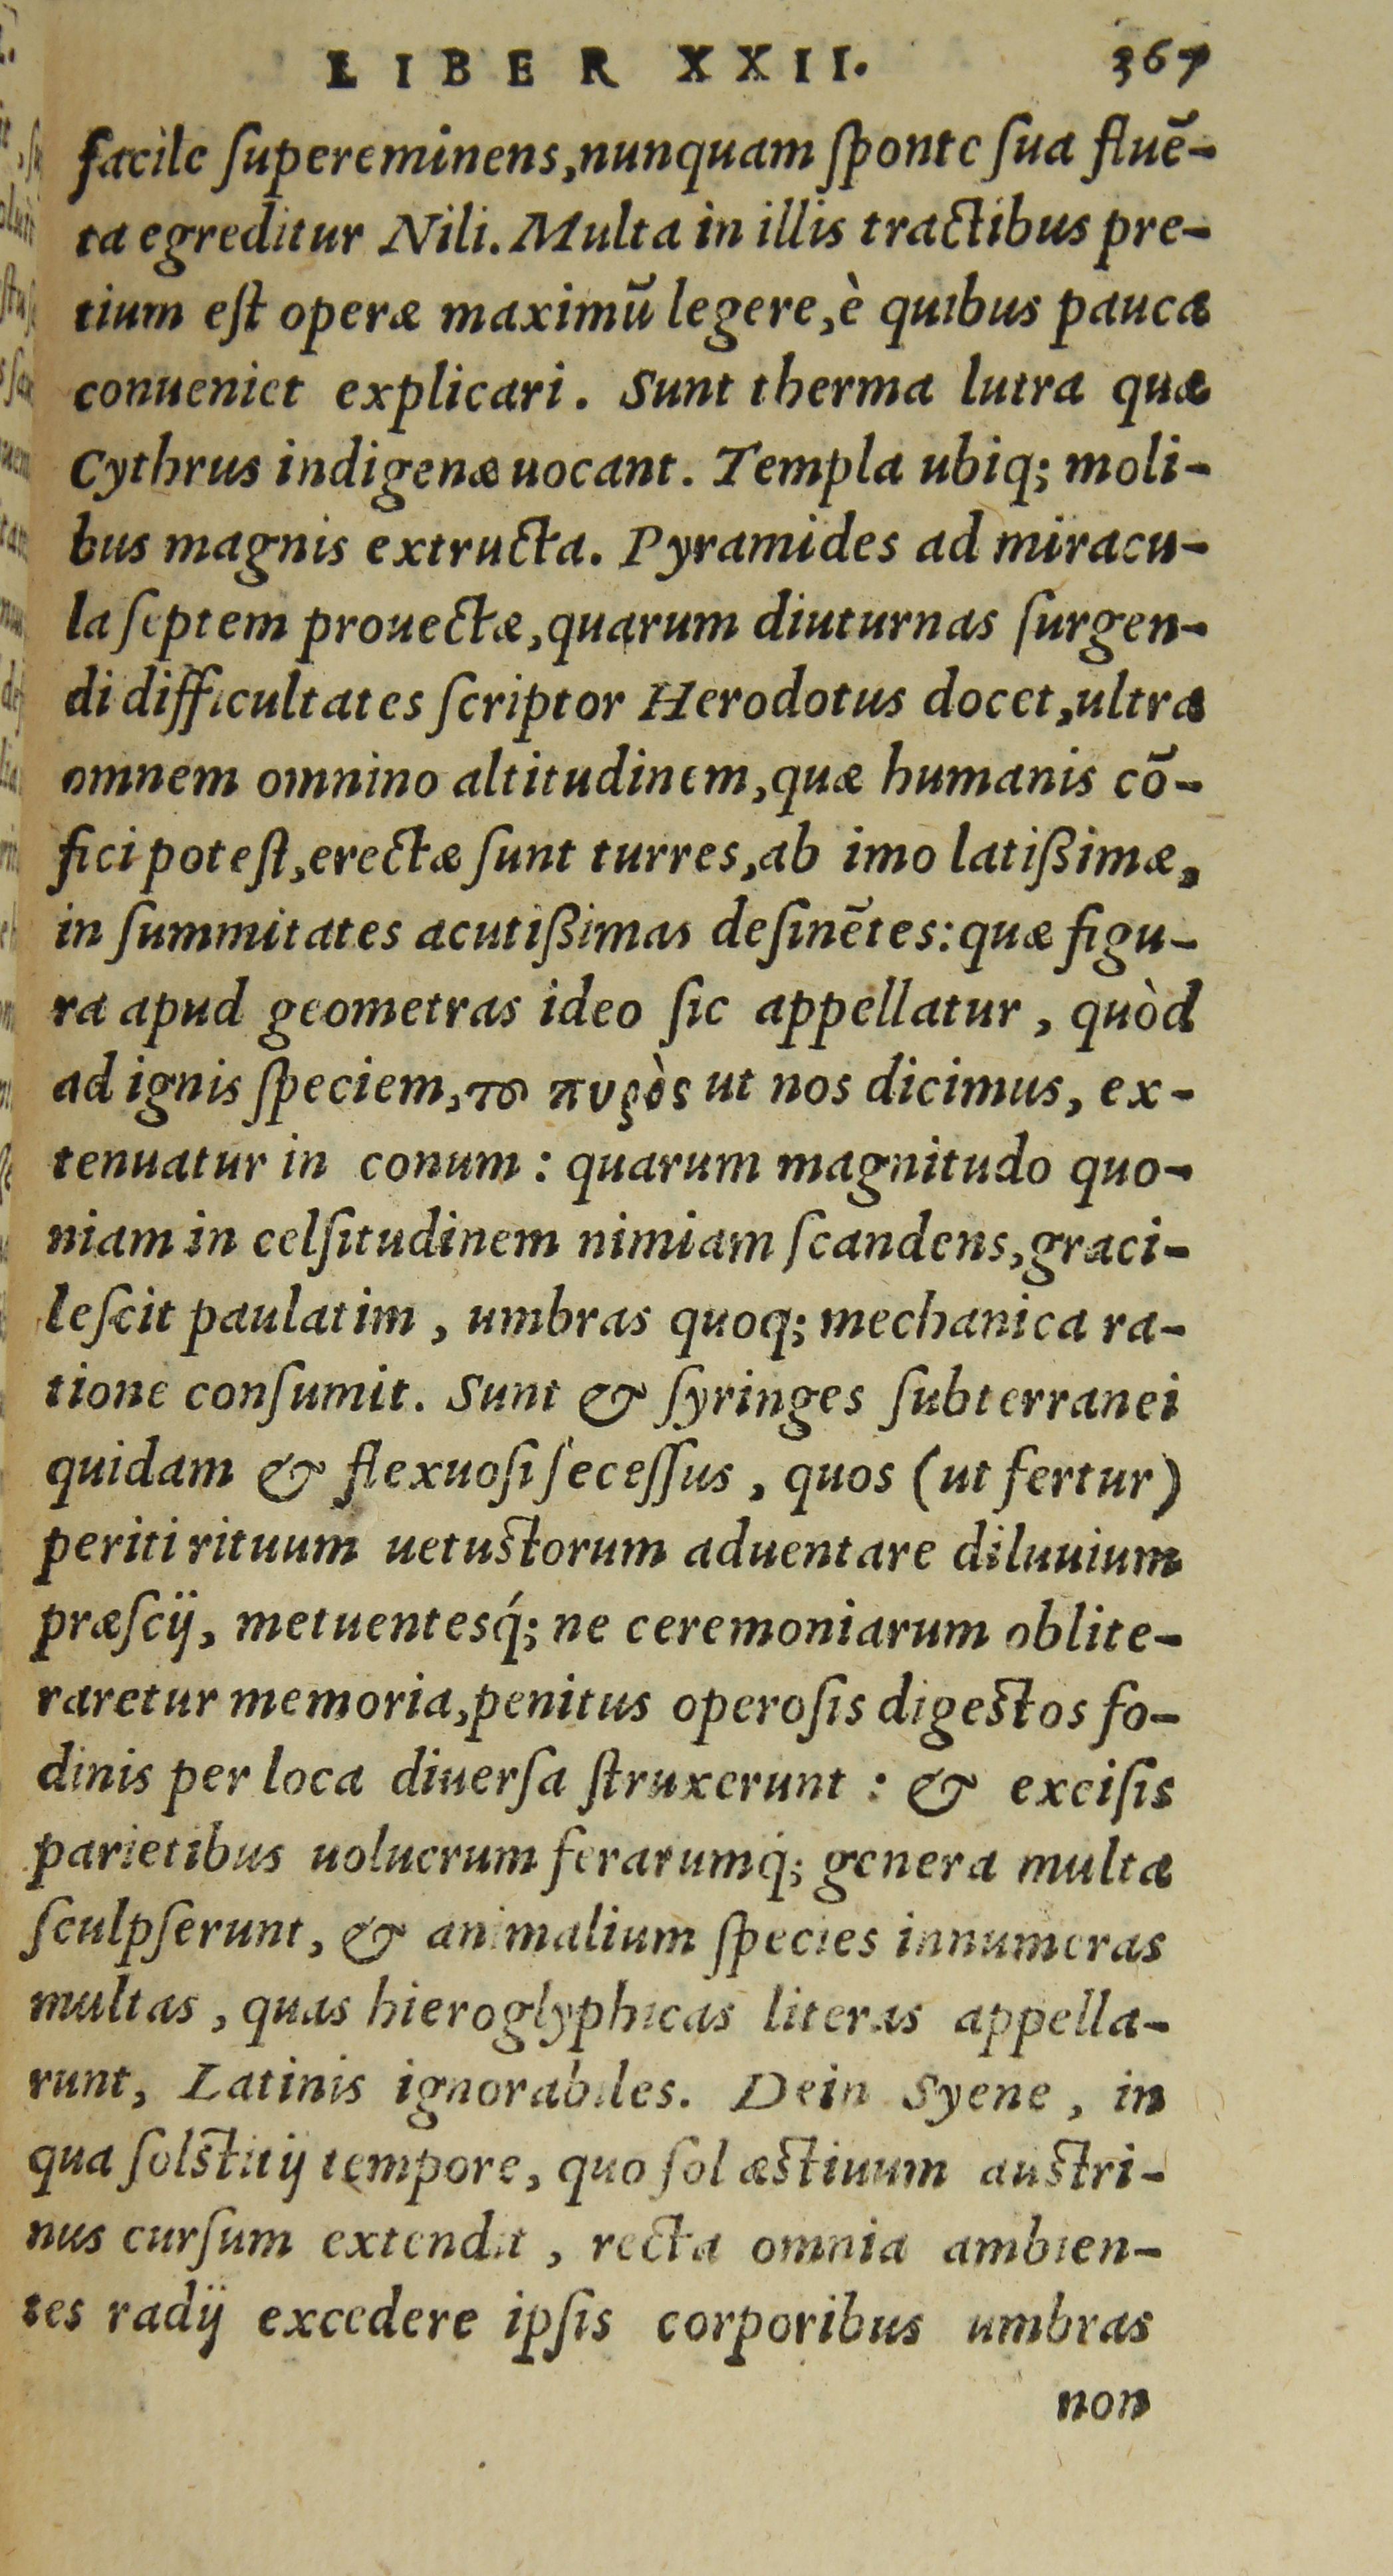 LIBER XXII. 367
facile ſupereminens,nunquam ſponte ſua fluē-
ta egreditur Nili. Multa in illis tractibus pre-
tium eſt operæ maximū legere,è quibus pauca
conueniet explicari. Sunt therma lutra quæ
Cythrus indigenæ uocant. Templa ubiq; moli-
bus magnis extructa. Pyramides ad miracu-
la ſeptem prouectæ,quarum diuturnas ſurgen-
di difficultates ſcriptor Herodotus docet,ultra
omnem omnino altitudinem,quæ humanis cō-
fici poteſt,erectæ ſunt turres,ab imo latißimæ,
in ſummitates acutißimas deſinētes:quæ figu-
ra apud geometras ideo ſic appellatur, quòd
ad ignis ſpeciem,το πυρὸς ut nos dicimus, ex-
tenuatur in conum: quarum magnitudo quo-
niam in celſitudinem nimiam ſcandens,graci-
leſcit paulatim, umbras quoq; mechanica ra-
tione conſumit. Sunt & ſyringes ſubterranei
quidam & flexuoſi ſeceſſus, quos (ut fertur)
periti rituum uetuſtorum aduentare diluuium
præſcij, metuentesq́; ne ceremoniarum oblite-
raretur memoria,penitus operoſis digeſtos fo-
dinis per loca diuerſa ſtruxerunt: & exciſis
parietibus uolucrum ferarumq́; genera multa
ſculpſerunt, & animalium ſpecies innumeras
multas, quas hieroglyphicas literas appella-
runt, Latinis ignorabiles. Dein Syene, in
qua ſolſtitij tempore, quo ſol æſtiuum auſtri-
nus curſum extendit, recta omnia ambien-
tes radij excedere ipſis corporibus umbras
non